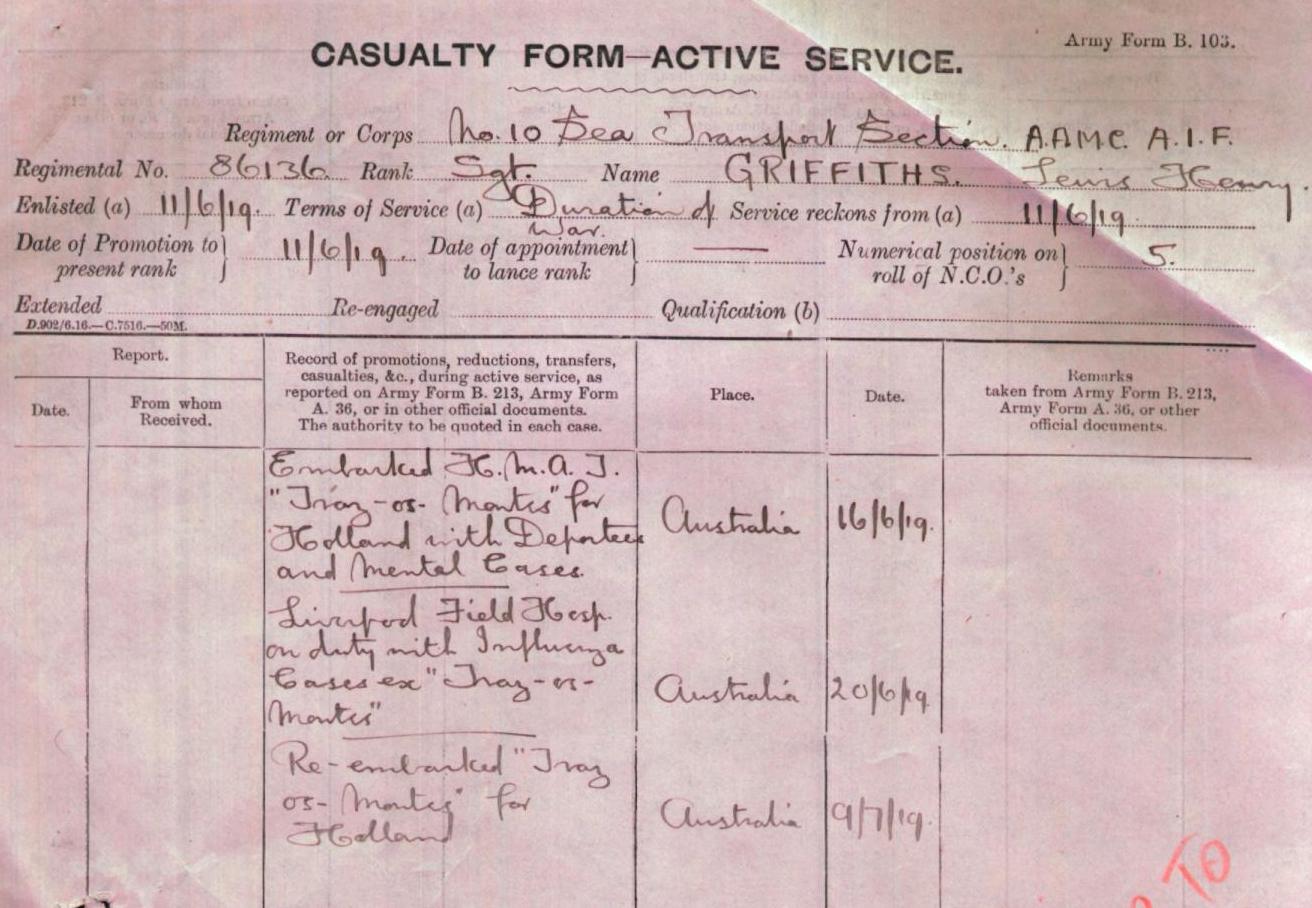 Army Form B. 103.
CASUALTY FORM—ACTIVE SERVICE.
Regiment or Corps No. 10 Sea Transport Section. A.A.M.C. A.I.F.
Regimental No. 86136 Rank Sgt. Name GRIFFITHS. Lewis Henry.
Enlisted (a) 11/6/19. Terms of Service (a) Duration of War. Service reckons from (a) 11/6/19.
Date of Promotion to present rank } 11/6/19. Date of appointment to lance rank } — Numerical position on roll of N.C.O.'s } 5.
Extended Re-engaged Qualification (b)
D.902/6.16.—C.7516.—50M.
Report.
Date.
From whom
Received.
Record of promotions, reductions, transfers,
casualties, &c., during active service, as
reported on Army Form B. 213, Army Form
A. 36, or in other official documents.
The authority to be quoted in each case.
Place.
Date.
Remarks
taken from Army Form B. 213,
Army Form A. 36, or other
official documents.
Embarked H.M.A.T.
"Traz-os-Montes" for
Holland with Deportees
and Mental Cases.
Australia 16/6/19.
Liverpool Field Hosp.
on duty with Influenza
Cases ex "Traz-os-
Montes"
Australia 20/6/19.
Re-embarked "Traz
os-Montes" for
Holland
Australia 9/7/19.
TO